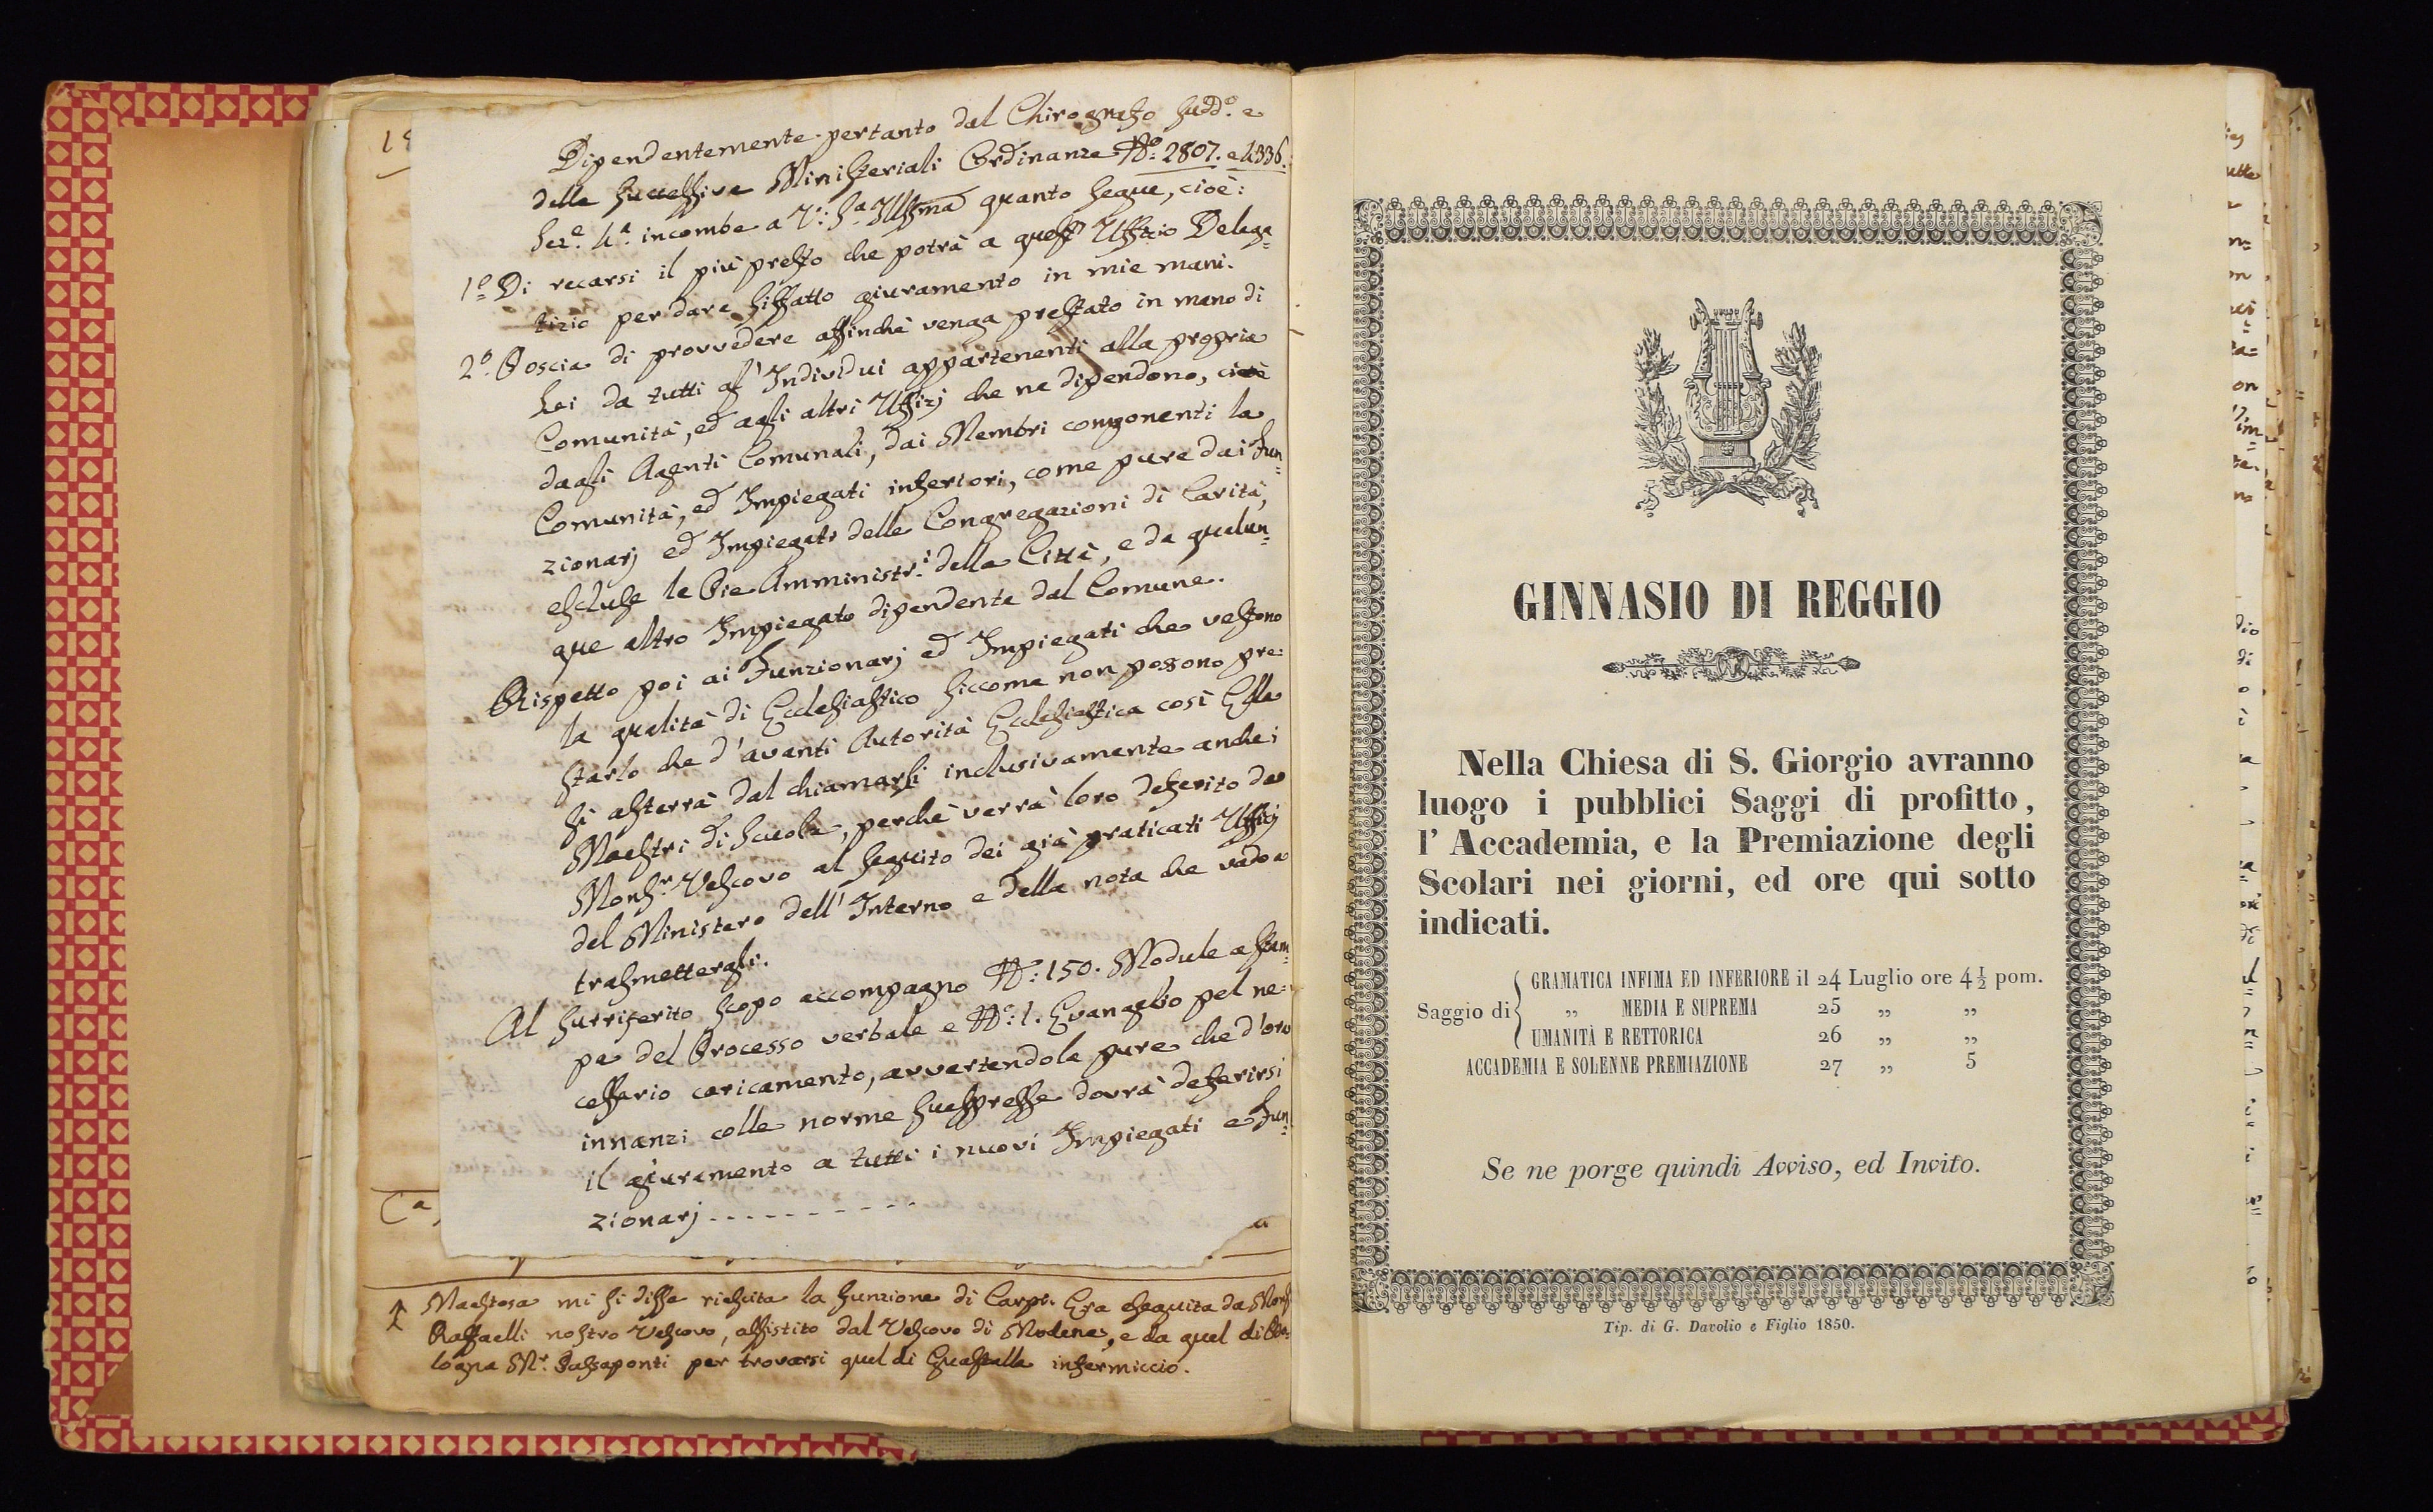 Dipendentemente pertanto dal Chirografo sudd.º e
delle successive Ministeriali Ordinanze Nº: 2807. e 4336.
Sez.e 4.a incombe a V.: S.a Illma quanto segue, cioè:
1º Di recarsi il più presto che potrà a quest' Uffizio Delega=
tizio per dare siffatto giuramento in mie mani.
2º. Poscia di provvedere affinchè venga prestato in mano di
Lei da tutti gl' Individui appartenenti alla propria
Comunità, ed agli altri Uffizj che ne dipendono, cioè
dagli Agenti Comunali, dai Membri componenti la
Comunità, ed Impiegati inferiori, come pure dai Fun=
zionarj ed Impiegati delle Congregazioni di Carità,
escluse le Pie Amministr.i della Città, e da qualun=
que altro Impiegato dipendente dal Comune.
Rispetto poi ai Funzionarj ed Impiegati che vestono
la qualità di Ecclesiastico siccome non possono pre=
starlo che d'avanti Autorità Ecclesiastica così Ella
si asterrà dal chiamarli inclusivamente anche i
Maestri di Scuola, perchè verrà loro deferito da
Mons.r Vescovo al seguito dei già praticati Uffizj
del Ministero dell' Interno e della nota che vado a
trasmettergli.
Al surriferito scopo accompagno Nº: 150. Module a stam=
pa del Processo verbale e Nº: 1. Evangelio pel ne=
cessario caricamento, avvertendola pure che d'ora
innanzi colle norme suespresse dovrà deferirsi
il giuramento a tutti i nuovi Impiegati e Fun=
zionarj - - - - - - - - - -
Maestosa mi si disse riescita la funzione di Carpi. Era eseguita da Mons
Raffaelli nostro Vescovo, assistito dal Vescovo di Modena, e da quel di Bo=
logna Mr. Passaponti per trovarsi quel di Guastalla infermiccio.
GINNASIO DI REGGIO
Nella Chiesa di S. Giorgio avranno
luogo i pubblici Saggi di profitto,
l' Accademia, e la Premiazione degli
Scolari nei giorni, ed ore qui sotto
indicati.
Saggio di { GRAMATICA INFIMA ED INFERIORE il 24 Luglio ore 4 ½ pom.
„ MEDIA E SUPREMA 25 „ „
UMANITÀ E RETTORICA 26 „ „
ACCADEMIA E SOLENNE PREMIAZIONE 27 „ 5
Se ne porge quindi Avviso, ed Invito.
Tip. di G. Davolio e Figlio 1850.